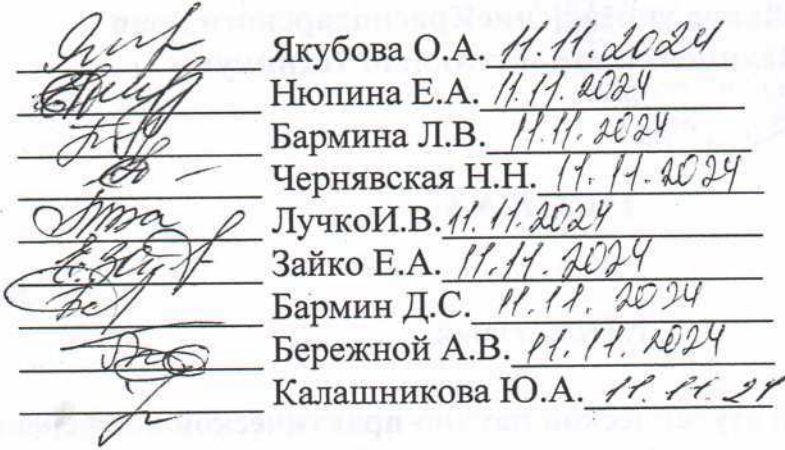 Якубова О.А. 11.11.2024
Нюпина Е.А. 11.11.2024
Бармина Л.В. 11.11.2024
Чернявская Н.Н. 11.11.2024
ЛучкоИ.В. 11.11.2024
Зайко Е.А. 11.11.2024
Бармин Д.С. 11.11.2024
Бережной А.В. 11.11.2024
Калашникова Ю.А. 11.11.24